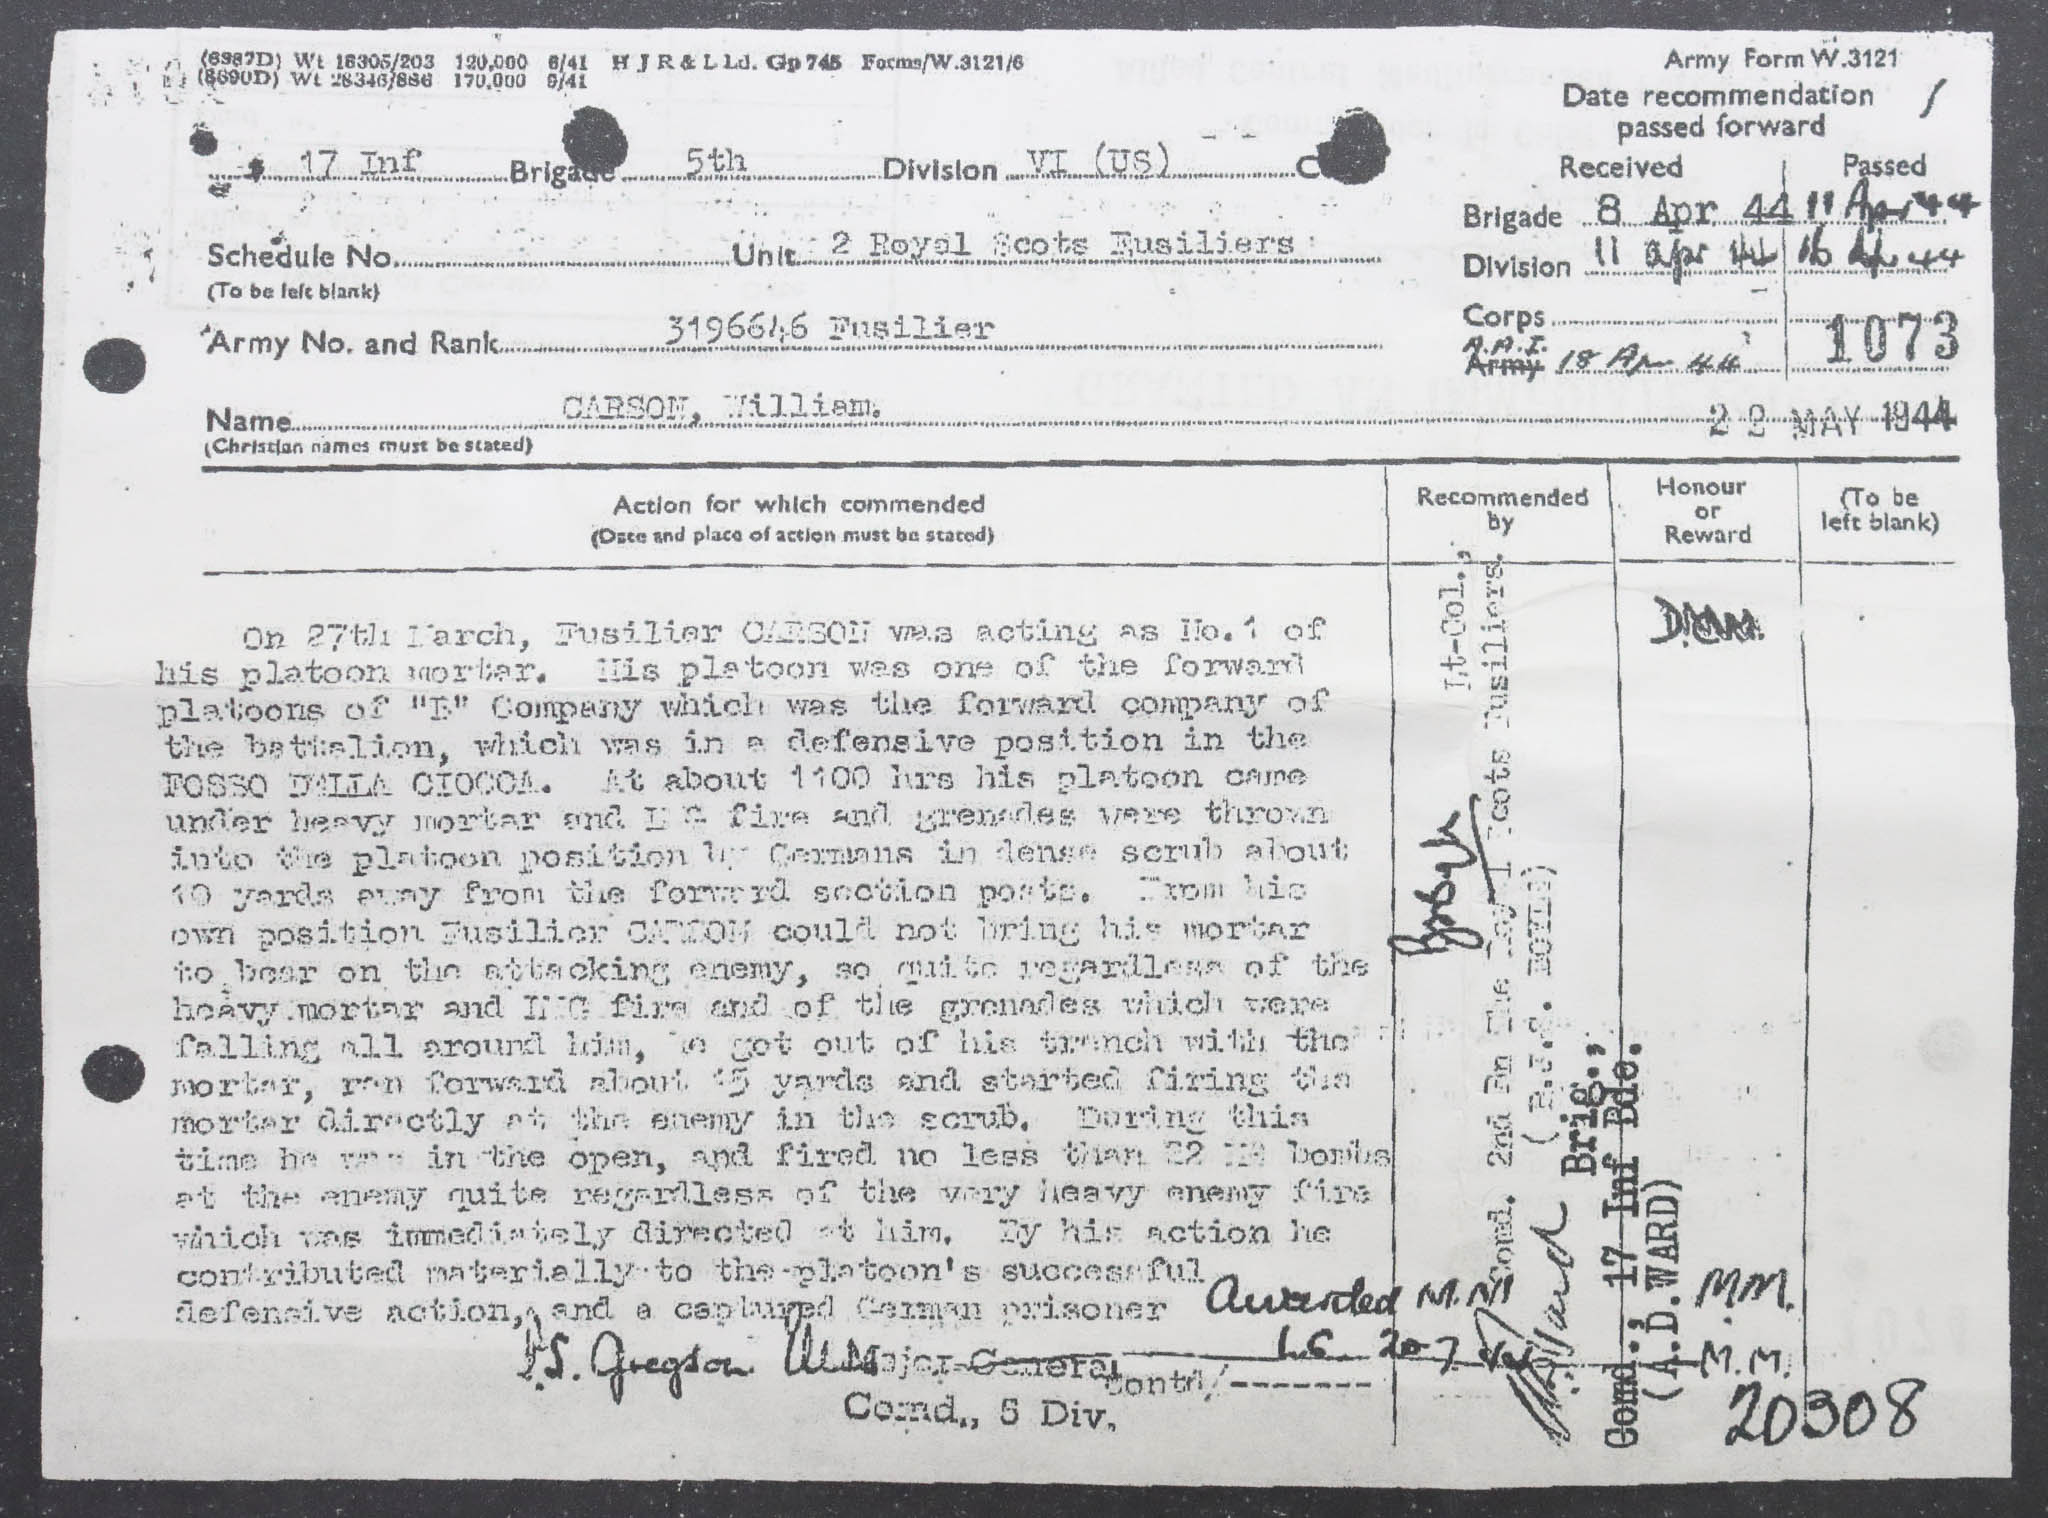 (6987D) Wt 18305/203 120,000 6/41 H J R & L Ld. Gp 745 Forms/W.3121/6
(8690D) Wt 28346/886 170,000 9/41
Army Form W.3121
Date recommendation
passed forward
Received Passed
17 Inf Brigade 5th Division VI (US) C
Brigade 8 Apr 44 11 Apr 44
Schedule No. Unit 2 Royal Scots Fusiliers
(To be left blank)
Division 11 Apr 44 16 44
Corps
1073
Army No. and Rank 3196646 Fusilier
A.A.I.
Army 18 Apr 44
Name CARSON, William.
(Christian names must be stated)
22 MAY 1944
Action for which commended
(Date and place of action must be stated)
Recommended
by
Honour
or
Reward
(To be
left blank)
On 27th March, Fusilier CARSON was acting as No.1 of
his platoon mortar. His platoon was one of the forward
platoons of "B" Company which was the forward company of
the battalion, which was in a defensive position in the
FOSSO DELLA CIOCCA. At about 1100 hrs his platoon came
under heavy mortar and LMG fire and grenades were thrown
into the platoon position by Germans in dense scrub about
10 yards away from the forward section posts. From his
own position Fusilier CARSON could not bring his mortar
to bear on the attacking enemy, so quite regardless of the
heavy mortar and LMG fire and of the grenades which were
falling all around him, he got out of his trench with the
mortar, ran forward about 15 yards and started firing the
mortar directly at the enemy in the scrub. During this
time he was in the open, and fired no less than 22 HE bombs
at the enemy quite regardless of the very heavy enemy fire
which was immediately directed at him. By his action he
contributed materially to the platoon's successful
defensive action, and a captured German prisoner
Contd/-------
Major General
Comd., 5 Div.
Awarded M.M
L.G. 20-7
Lt-Col.,
Comd. 2nd Bn The Royal Scots Fusiliers.
Brig.,
Comd., 17 Inf Bde.
(A.D.WARD)
D.C.M.
M.M.
M.M.
20308